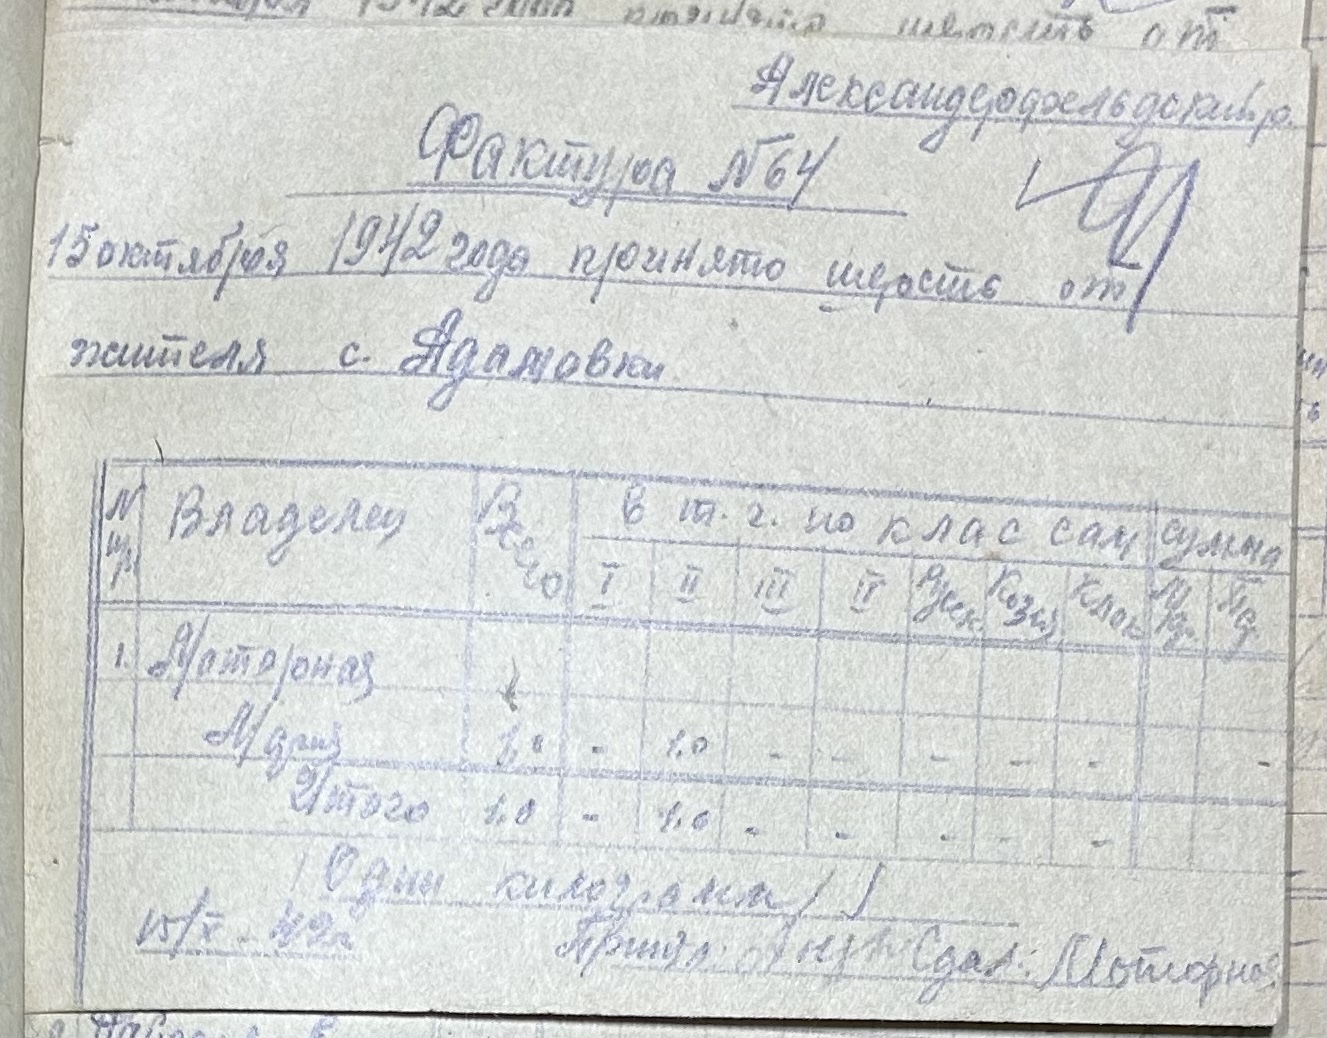 1942 года принято шерсть от
Александрофельдский р.
Фактура №64
15 октября 1942 года принято шерсть от
жителя с. Адамовки
N пр. Владелец Всего в т. ч. по классам сумма
I II III IV Русск. Козья Клок Мр. Пф.
1. Моторная
Мария 1,0 - 1,0 - - - - - -
Итого 1,0 - 1,0 - - - - -
/Один килограмм/
15/X - 42 г. Принял: Сдал: Моторная